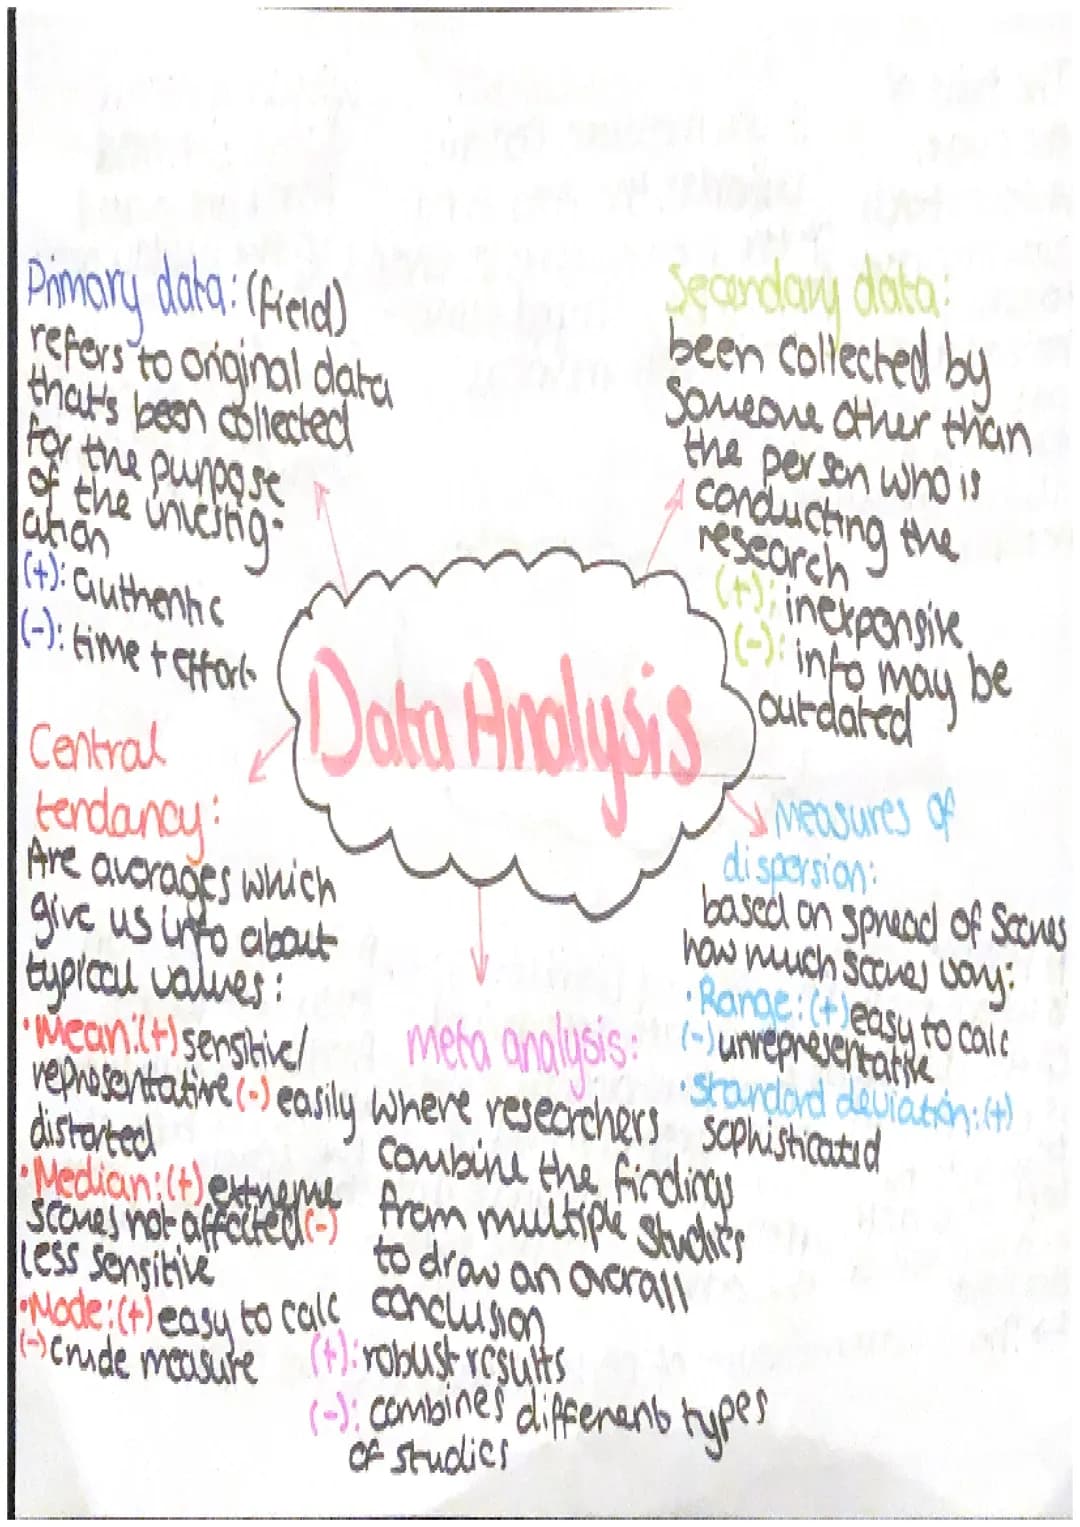 Primary data: (field)
refers to original data
that's been collected
for the purpose
of the investig-
ation
(+): authentic
(-): time + effort
Secondary data:
been collected by
someone other than
the person who is
conducting the
research
(+): inexpensive
(-): info may be
outdated
Data Analysis
Central
tendancy:
Are averages which
give us info about
typical values:
• Mean: (+) sensitive/
representative (-) easily
distorted
• Median: (+) extreme
scores not affected (-)
less sensitive
• Mode: (+) easy to calc
(-) crude measure
meta analysis:
where researchers
combine the findings
from multiple studies
to draw an overall
conclusion
(+): robust results
(-): combines different types
of studies
Measures of
dispersion:
based on spread of scores
how much scores vary:
• Range: (+) easy to calc
(-) unrepresentative
• standard deviation: (+)
sophisticated